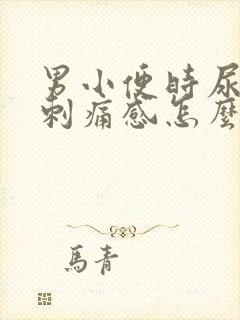 男小便時尿
刺痛感怎麼
馬青